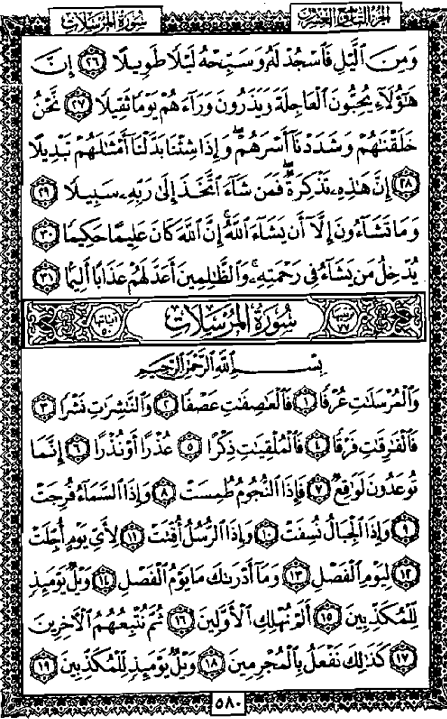 سورة المرسلات
الجزء التاسع العشرون
وَمِنَ ٱلَّيْلِ فَٱسْجُدْ لَهُۥ وَسَبِّحْهُ لَيْلًا طَوِيلًا ٢٦ إِنَّ
هَٰٓؤُلَآءِ يُحِبُّونَ ٱلْعَاجِلَةَ وَيَذَرُونَ وَرَآءَهُمْ يَوْمًا ثَقِيلًا ٢٧ نَّحْنُ
خَلَقْنَٰهُمْ وَشَدَدْنَآ أَسْرَهُمْ ۖ وَإِذَا شِئْنَا بَدَّلْنَآ أَمْثَٰلَهُمْ تَبْدِيلًا
٢٨ إِنَّ هَٰذِهِۦ تَذْكِرَةٌ ۖ فَمَن شَآءَ ٱتَّخَذَ إِلَىٰ رَبِّهِۦ سَبِيلًا ٢٩
وَمَا تَشَآءُونَ إِلَّآ أَن يَشَآءَ ٱللَّهُ ۚ إِنَّ ٱللَّهَ كَانَ عَلِيمًا حَكِيمًا ٣٠
يُدْخِلُ مَن يَشَآءُ فِى رَحْمَتِهِۦ ۚ وَٱلظَّٰلِمِينَ أَعَدَّ لَهُمْ عَذَابًا أَلِيمًۢا ٣١
سورة المرسلات
بِسْمِ ٱللَّهِ ٱلرَّحْمَٰنِ ٱلرَّحِيمِ
وَٱلْمُرْسَلَٰتِ عُرْفًا ١ فَٱلْعَٰصِفَٰتِ عَصْفًا ٢ وَٱلنَّٰشِرَٰتِ نَشْرًا ٣
فَٱلْفَٰرِقَٰتِ فَرْقًا ٤ فَٱلْمُلْقِيَٰتِ ذِكْرًا ٥ عُذْرًا أَوْ نُذْرًا ٦ إِنَّمَا
تُوعَدُونَ لَوَٰقِعٌ ٧ فَإِذَا ٱلنُّجُومُ طُمِسَتْ ٨ وَإِذَا ٱلسَّمَآءُ فُرِجَتْ
٩ وَإِذَا ٱلْجِبَالُ نُسِفَتْ ١٠ وَإِذَا ٱلرُّسُلُ أُقِّتَتْ ١١ لِأَىِّ يَوْمٍ أُجِّلَتْ
١٢ لِيَوْمِ ٱلْفَصْلِ ١٣ وَمَآ أَدْرَىٰكَ مَا يَوْمُ ٱلْفَصْلِ ١٤ وَيْلٌ يَوْمَئِذٍ
لِّلْمُكَذِّبِينَ ١٥ أَلَمْ نُهْلِكِ ٱلْأَوَّلِينَ ١٦ ثُمَّ نُتْبِعُهُمُ ٱلْءَاخِرِينَ
١٧ كَذَٰلِكَ نَفْعَلُ بِٱلْمُجْرِمِينَ ١٨ وَيْلٌ يَوْمَئِذٍ لِّلْمُكَذِّبِينَ ١٩
٥٨٠